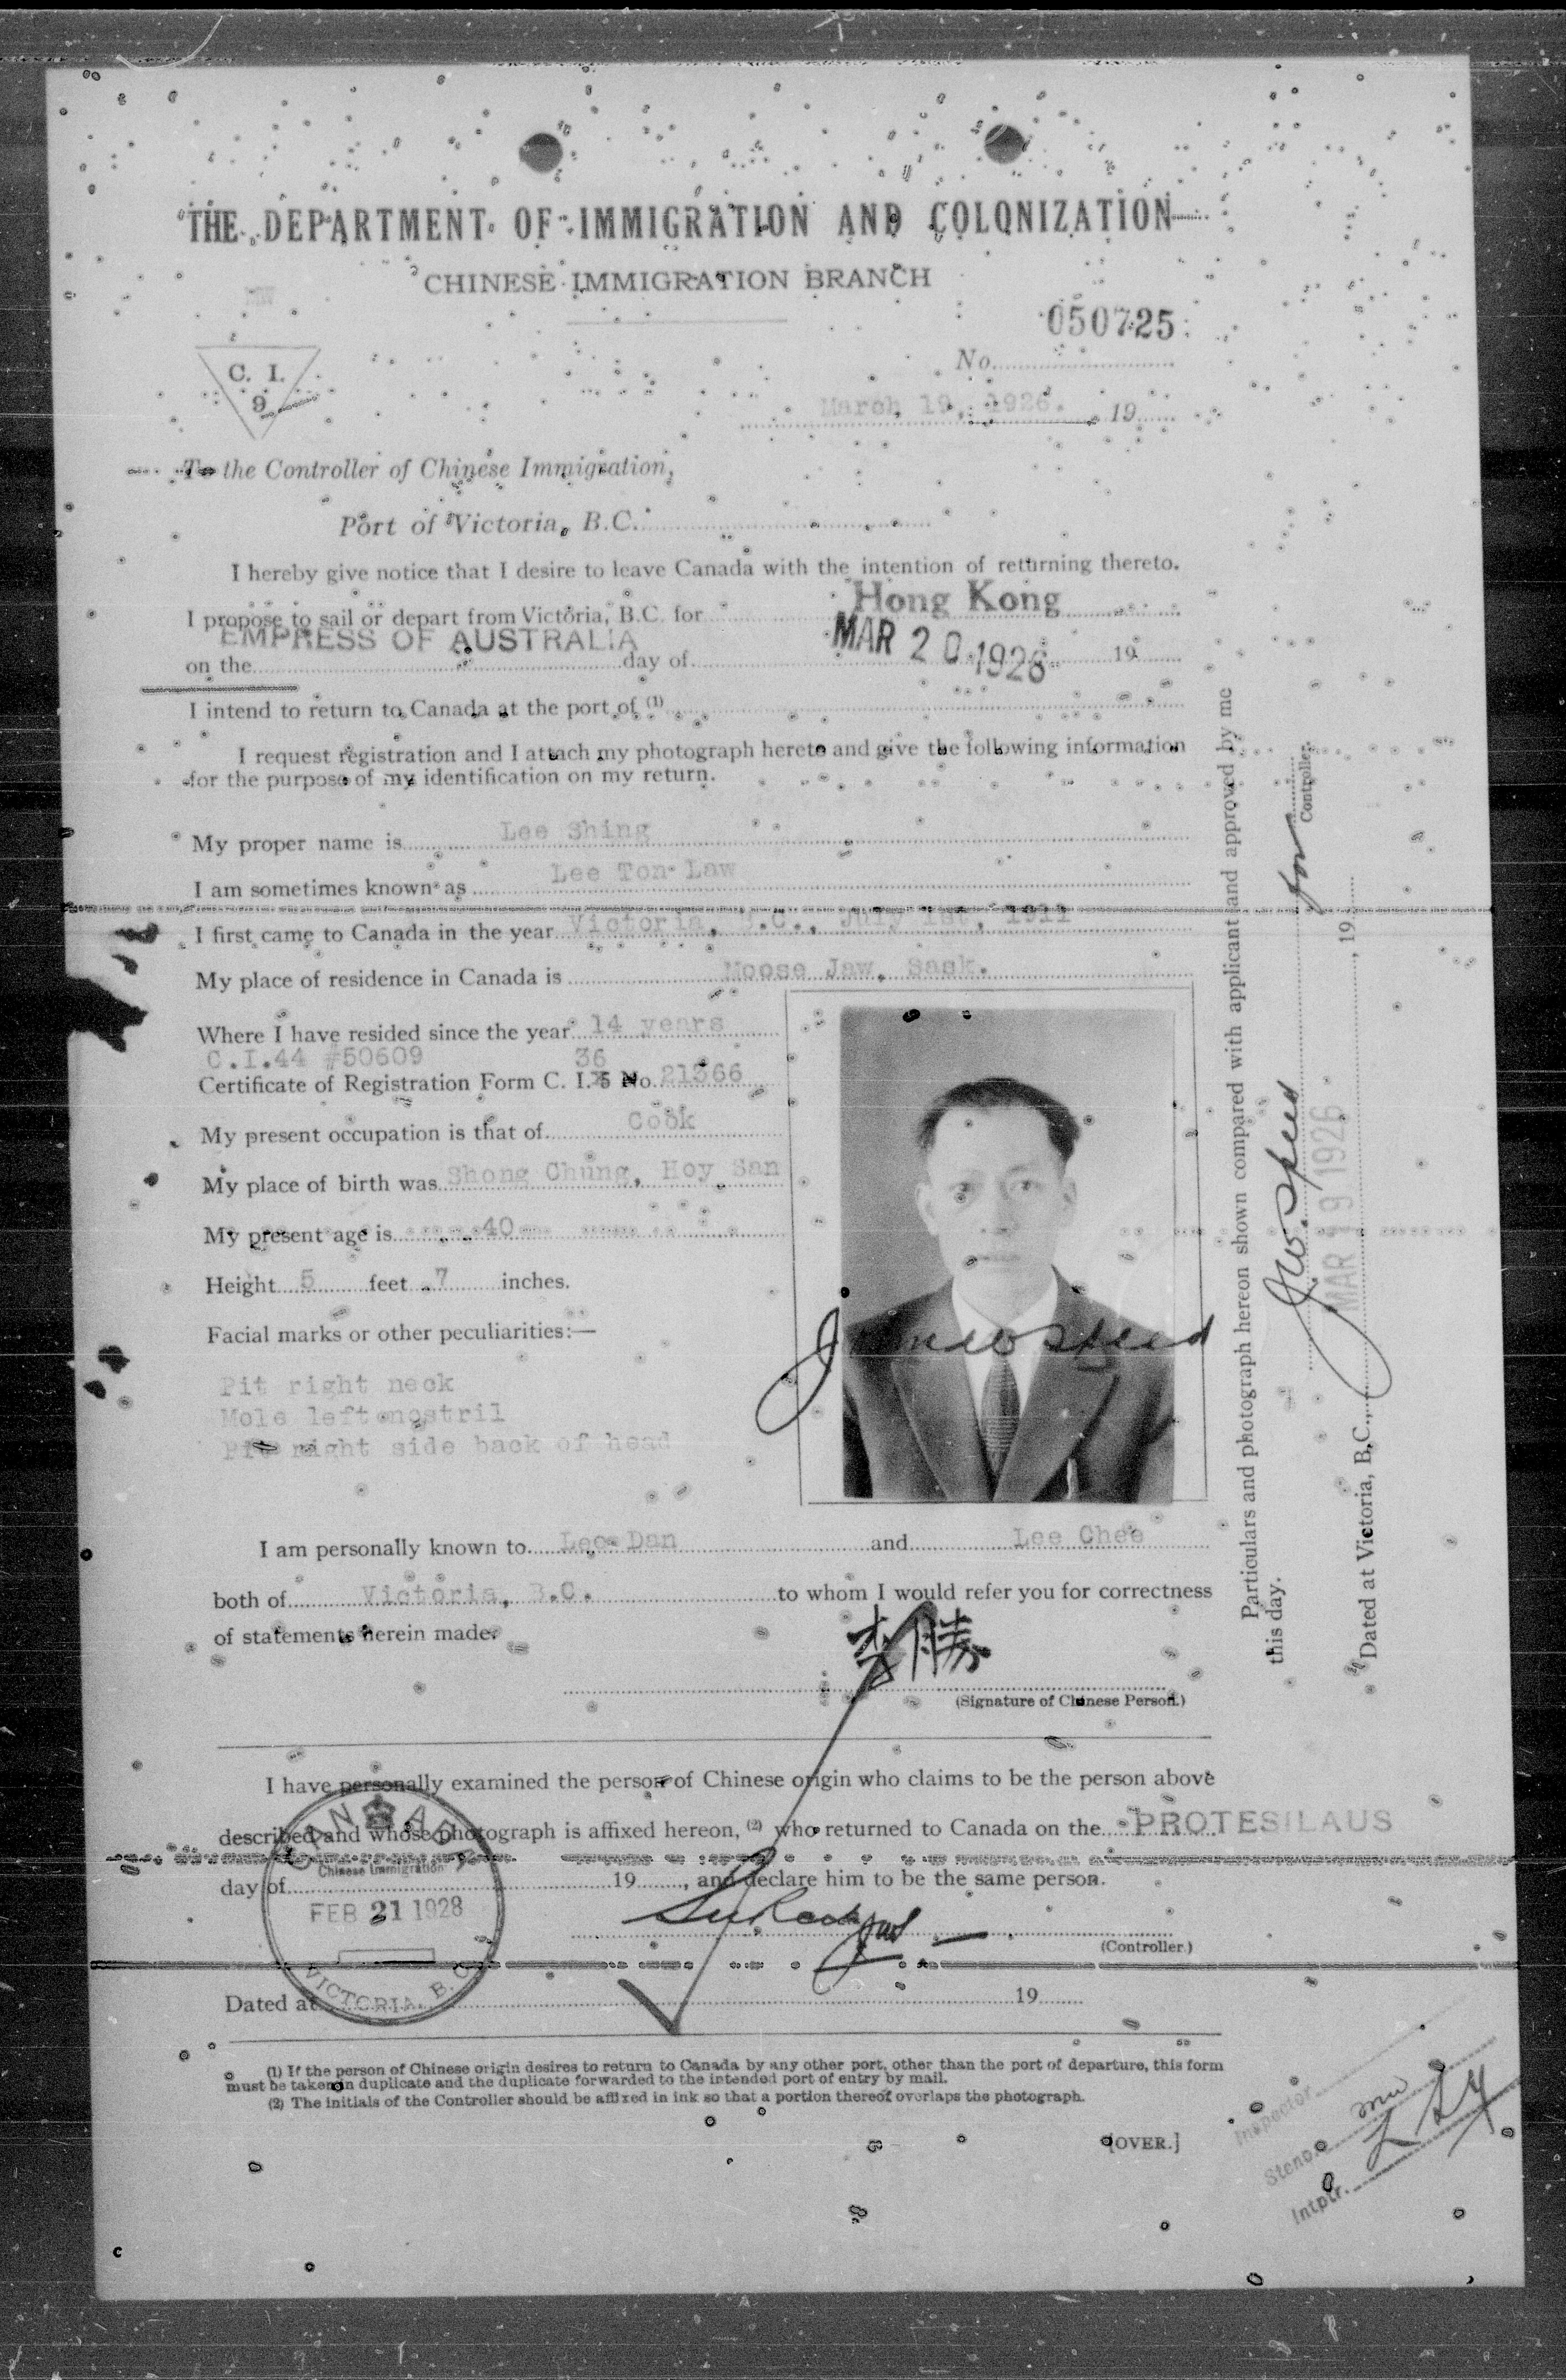 THE DEPARTMENT OF IMMIGRATION AND COLONIZATION
CHINESE IMMIGRATION BRANCH
050725
No.
C. I.
9
March 19, 1926. 19
To the Controller of Chinese Immigration,
Port of Victoria, B.C.
I hereby give notice that I desire to leave Canada with the intention of returning thereto.
I propose to sail or depart from Victoria, B.C. for Hong Kong
EMPRESS OF AUSTRALIA
on the day of MAR 20 1926 19
I intend to return to Canada at the port of (1)
I request registration and I attach my photograph hereto and give the following information
for the purpose of my identification on my return.
My proper name is Lee Shing
I am sometimes known as Lee Ton Law
I first came to Canada in the year Victoria, B.C., July 1911
My place of residence in Canada is Moose Jaw, Sask.
Where I have resided since the year 14 years
C.I.44 #50609 36
Certificate of Registration Form C. I. 5 No. 21366
My present occupation is that of Cook
My place of birth was Shong Chung, Hoy San
My present age is 40
Height 5 feet 7 inches.
Facial marks or other peculiarities:—
Pit right neck
Mole left nostril
Pit right side back of head
I am personally known to Lee Dan and Lee Chee
both of Victoria, B.C. to whom I would refer you for correctness
of statements herein made.
李勝
(Signature of Chinese Person.)
I have personally examined the person of Chinese origin who claims to be the person above
described and whose photograph is affixed hereon, (2) who returned to Canada on the PROTESILAUS
day of 19 , and declare him to be the same person.
(Controller.)
Dated at 19
CANADA
Chinese Immigration
FEB 21 1928
VICTORIA, B.C.
(1) If the person of Chinese origin desires to return to Canada by any other port, other than the port of departure, this form
must be taken in duplicate and the duplicate forwarded to the intended port of entry by mail.
(2) The initials of the Controller should be affixed in ink so that a portion thereof overlaps the photograph.
[OVER.]
Particulars and photograph hereon shown compared with applicant and approved by me
this day.
JW Speed for
Controller.
MAR 19 1926
Dated at Victoria, B.C., , 19
Inspector
Steno. mw
Intptr.